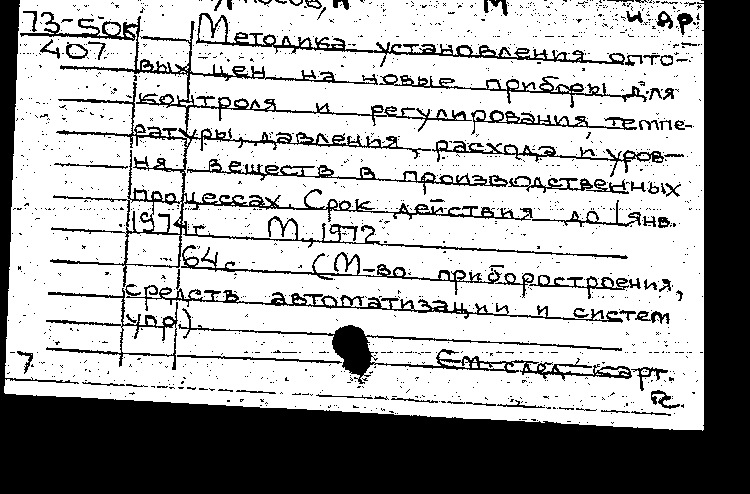 М и др.
73-50К Методика установления опто-
407
вых цен на новые приборы для
контроля и регулирования темпе-
ратуры, давления, расхода и уров-
ня веществ в производственных
процессах. Срок действия до 1 янв.
1974 г. М., 1972.
64 с (М-во приборостроения,
средств автоматизации и систем
упр.).
7 См. след. карт.